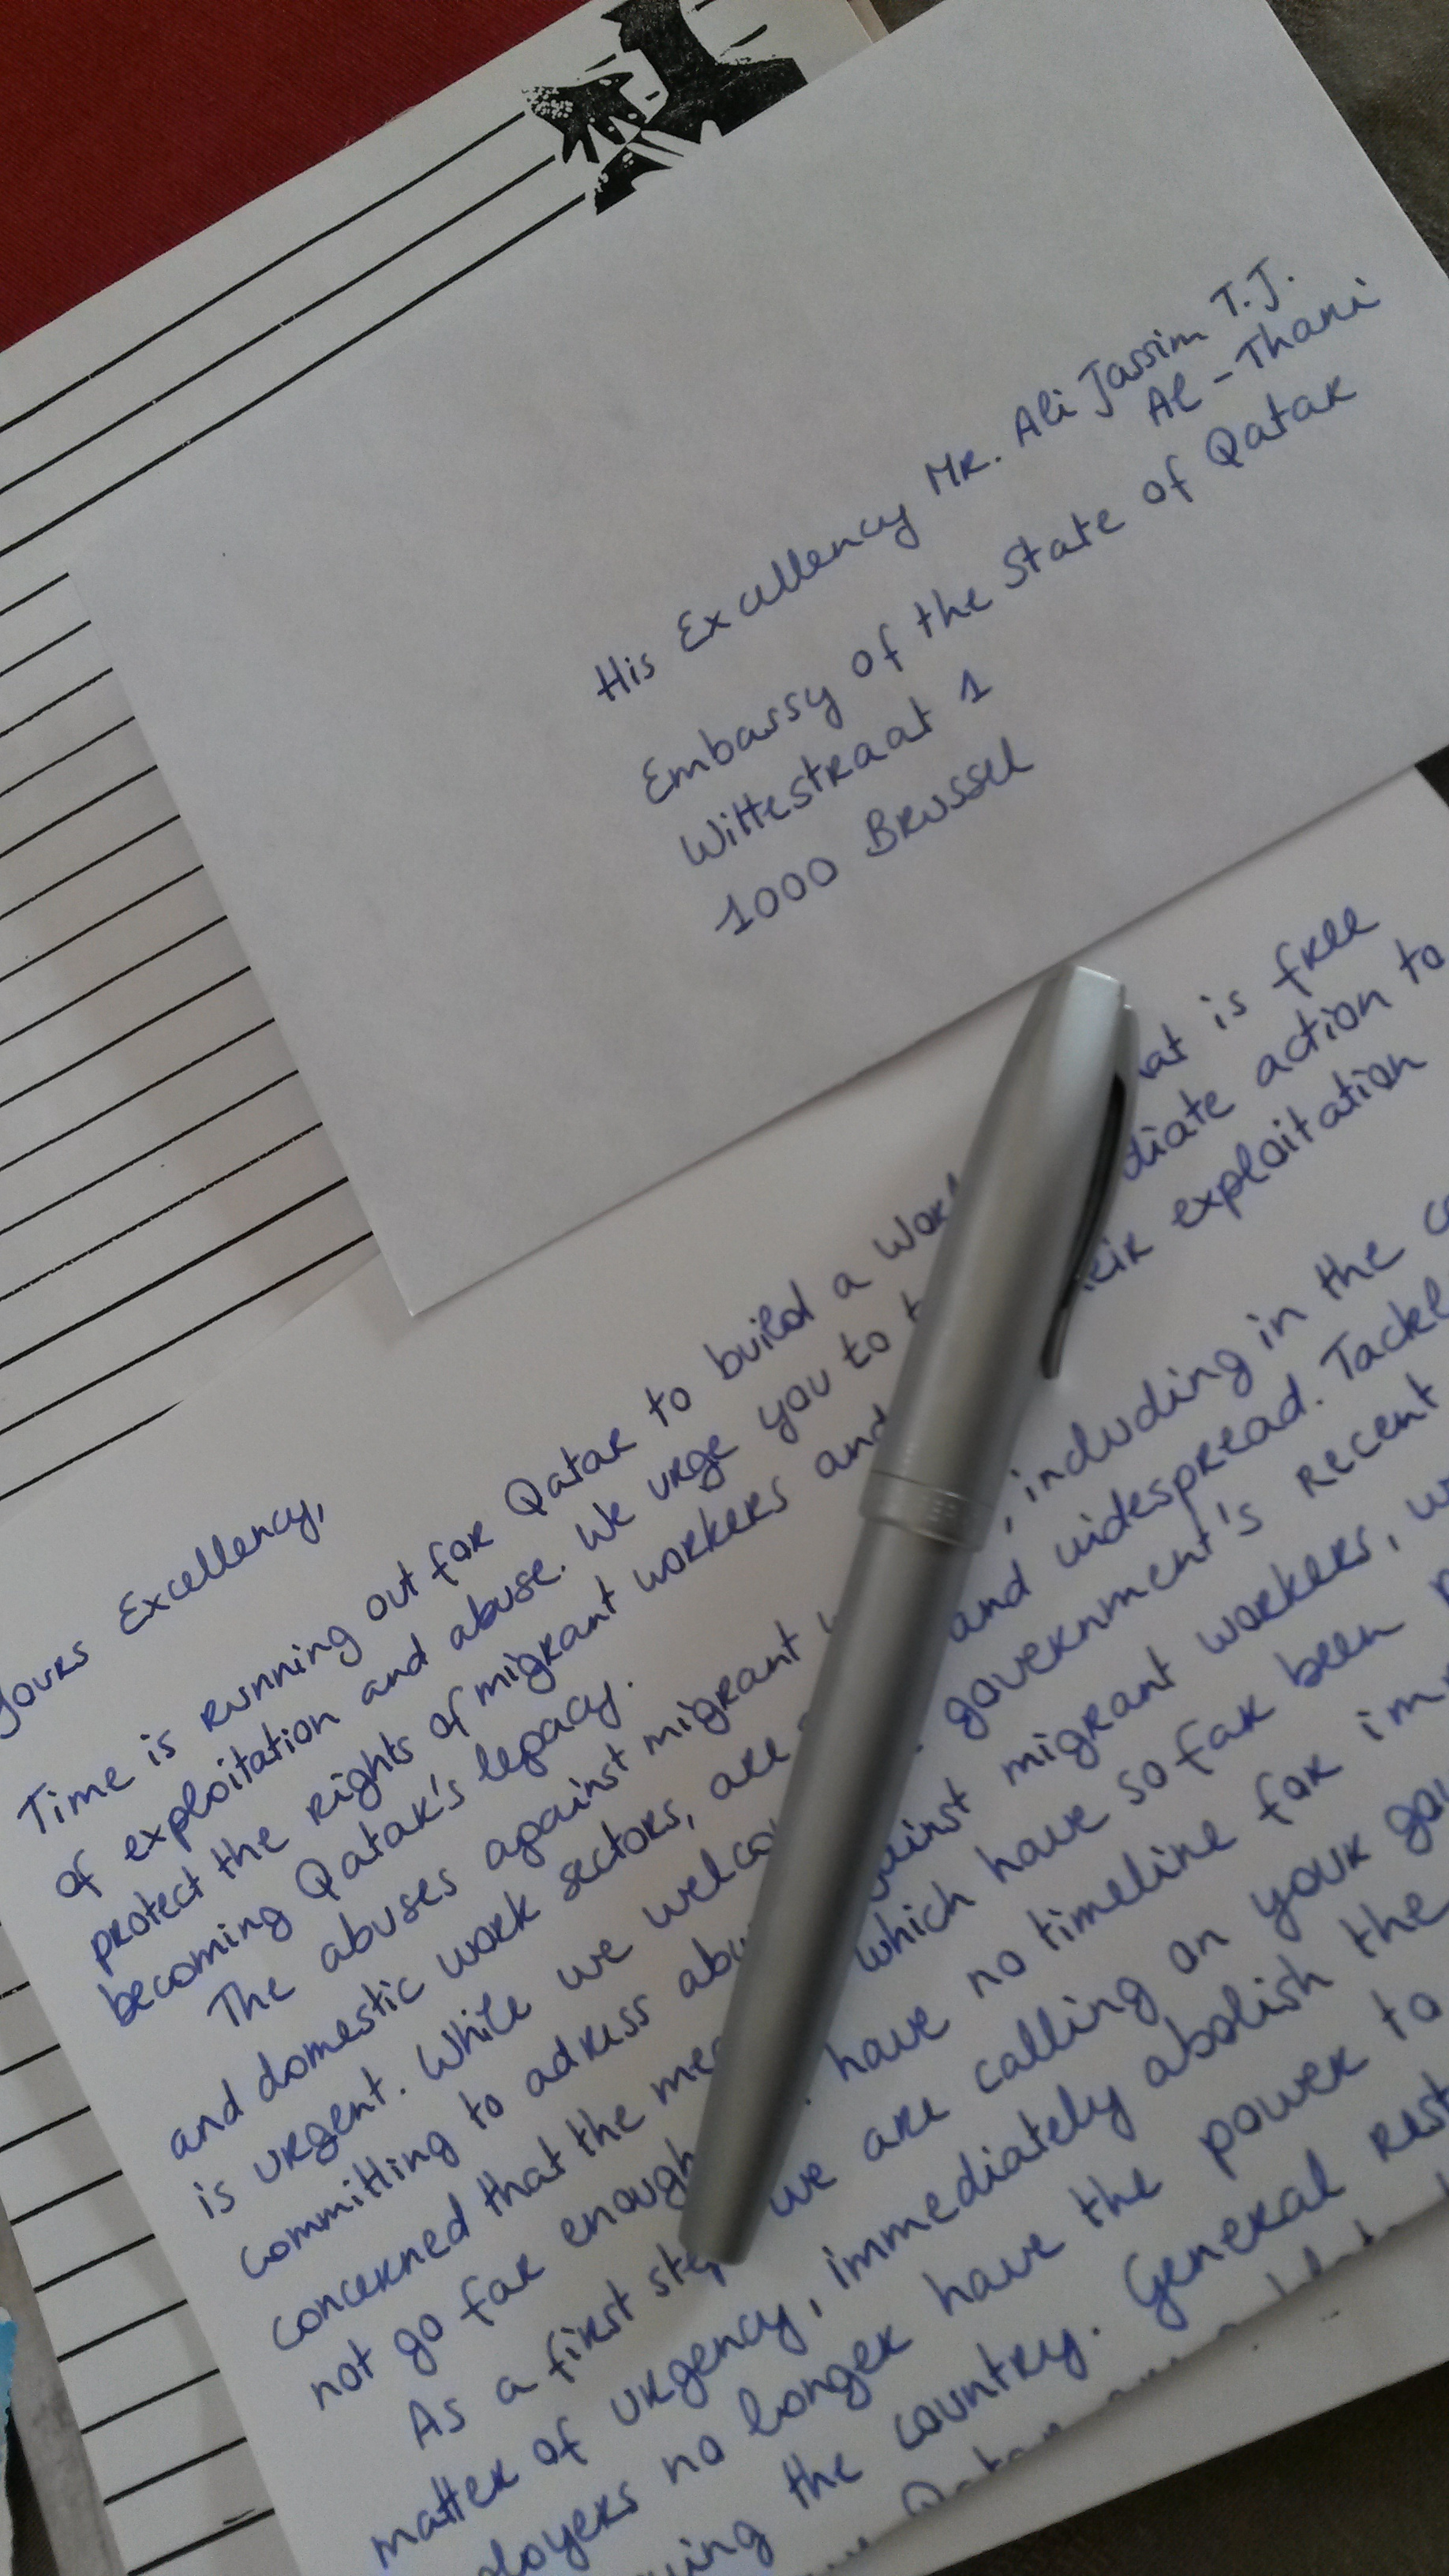 His Excellency Mr. Ali Jassim T.J.
Al-Thani
Embassy of the State of Qatar
Wittestraat 1
1000 Brussel
Yours Excellency,
Time is running out for Qatar to build a is free
of exploitation and abuse. We urge you to action to
protect the rights of migrant workers and exploitation
becoming Qatar's legacy.
The abuses against migrant , including in the
and domestic work sectors, are and widespread.
is urgent. While we government's recent
committing to adress against migrant workers,
concerned that the which have so far been
not go far enough have no timeline for
As a first step we are calling on your
matter of urgency, immediately abolish the
no longer have the power to
the country. General